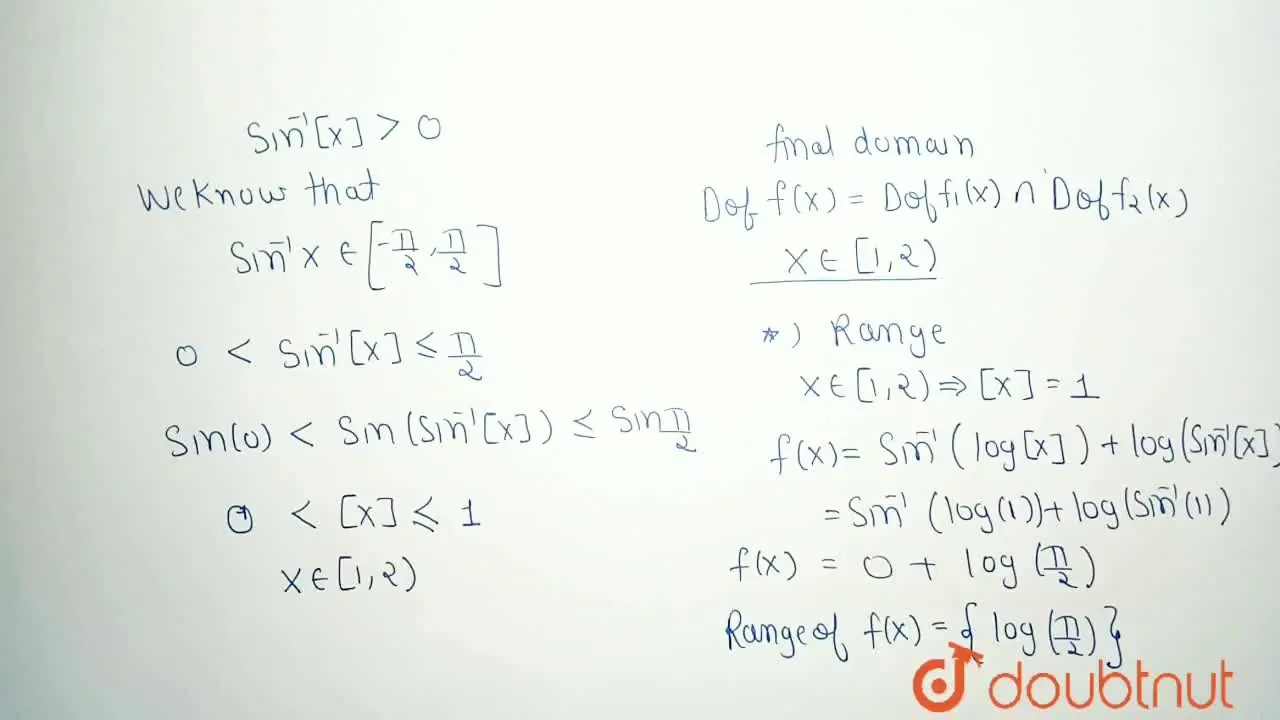 Sin⁻¹[x] > 0
We Know that
Sin⁻¹x ∈ [-π/2, π/2]
0 < Sin⁻¹[x] ≤ π/2
Sin(0) < Sin(Sin⁻¹[x]) ≤ Sin π/2
0 < [x] ≤ 1
x ∈ [1,2)
final domain
D of f(x) = D of f₁(x) ∩ D of f₂(x)
x ∈ [1,2)
*) Range
x ∈ [1,2) ⇒ [x] = 1
f(x) = Sin⁻¹(log[x]) + log(Sin⁻¹[x])
= Sin⁻¹(log(1)) + log(Sin⁻¹(1))
f(x) = 0 + log(π/2)
Range of f(x) = {log(π/2)}
doubtnut